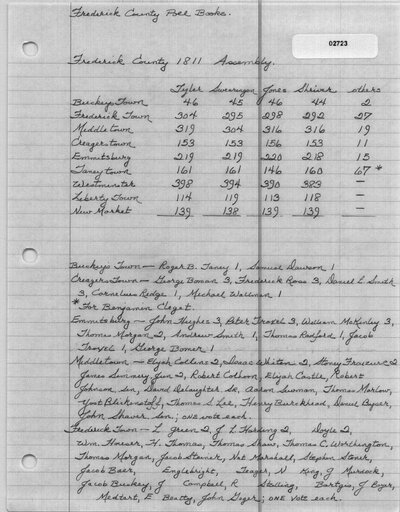 Frederick County Poll Books.
02723
Frederick County 1811 Assembly.
Tyler Swearingen Jones Shriver others
Buckeystown 46 45 46 44 2
Frederick Town 304 295 298 292 27
Middletown 319 304 316 316 19
Creagerstown 153 153 156 153 11
Emmitsburg 219 219 220 218 15
Taneytown 161 161 146 160 67 *
Westminster 398 394 390 383 —
Liberty Town 114 119 113 118 —
New Market 139 138 139 139 —
Buckey's Town — Roger B. Taney 1, Samuel Dawson 1
Creagerstown — George Boman 3, Frederick Ross 3, Daniel L. Smith
3, Cornelius Ridge 1, Michael Waltman 1
* For Benjamin Clagat.
Emmitsburg — John Hughes 3, Peter Troxel 3, William McKinley 3,
Thomas Morgan 2, Andrew Smith 1, Thomas Radford 1, Jacob
Troxel 1, George Bomer 1.
Middletown — Elijah Collins 2, Isaac Whiton 2, Stoney 2
James Summery, Jun 2, Robert Cothon, Elijah Castle, Robert
Johnson Son, David DeLaughter Sr, Aaron Suoman, Thomas Marlow,
Yost Blickenstaff, Thomas S. Lee, Henry Burckhead, David Bowser,
John Shaver son; one vote each.
Frederick Town — L. Green 2, J L Harding 2, Doyle 2,
Wm. Howser, H. Thomas, Thomas Shaw, Thomas C. Worthington,
Thomas Morgan, Jacob Steiner, Nat Marshall, Stephen Stoner,
Jacob Baer, Englebright, Teager, N King, J Murdock,
Jacob Buckey, J Campbell, R Stalling, Bartgis, J Boyer,
Medtart, E Beatty, John Geyer; one vote each.